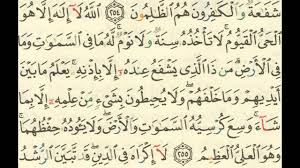 شَفَٰعَةٌ ۗ وَٱلْكَٰفِرُونَ هُمُ ٱلظَّٰلِمُونَ ٢٥٤ ٱللَّهُ لَآ إِلَٰهَ إِلَّا هُوَ
ٱلْحَىُّ ٱلْقَيُّومُ ۚ لَا تَأْخُذُهُۥ سِنَةٌ وَلَا نَوْمٌ ۚ لَّهُۥ مَا فِى ٱلسَّمَٰوَٰتِ وَمَا
فِى ٱلْأَرْضِ ۗ مَن ذَا ٱلَّذِى يَشْفَعُ عِندَهُۥٓ إِلَّا بِإِذْنِهِۦ ۚ يَعْلَمُ مَا بَيْنَ
أَيْدِيهِمْ وَمَا خَلْفَهُمْ ۖ وَلَا يُحِيطُونَ بِشَىْءٍ مِّنْ عِلْمِهِۦٓ إِلَّا بِمَا
شَآءَ ۚ وَسِعَ كُرْسِيُّهُ ٱلسَّمَٰوَٰتِ وَٱلْأَرْضَ ۖ وَلَا يَـُٔودُهُۥ حِفْظُهُمَا ۚ
وَهُوَ ٱلْعَلِىُّ ٱلْعَظِيمُ ٢٥٥ لَآ إِكْرَاهَ فِى ٱلدِّينِ ۖ قَد تَّبَيَّنَ ٱلرُّشْدُ